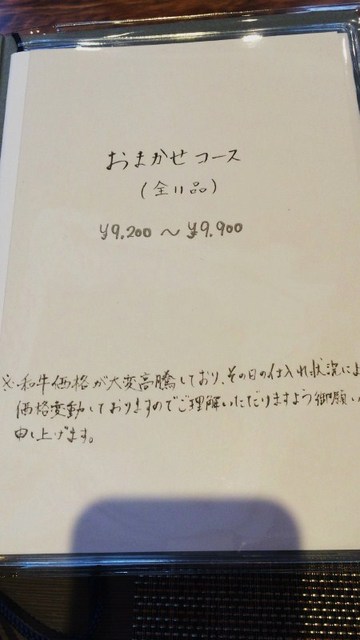 おまかせコース
(全11品)
¥9,200 〜 ¥9,900
※和牛価格が大変高騰しており、その日の仕入れ状況によ
価格変動しておりますのでご理解いただけますよう御願い
申し上げます。